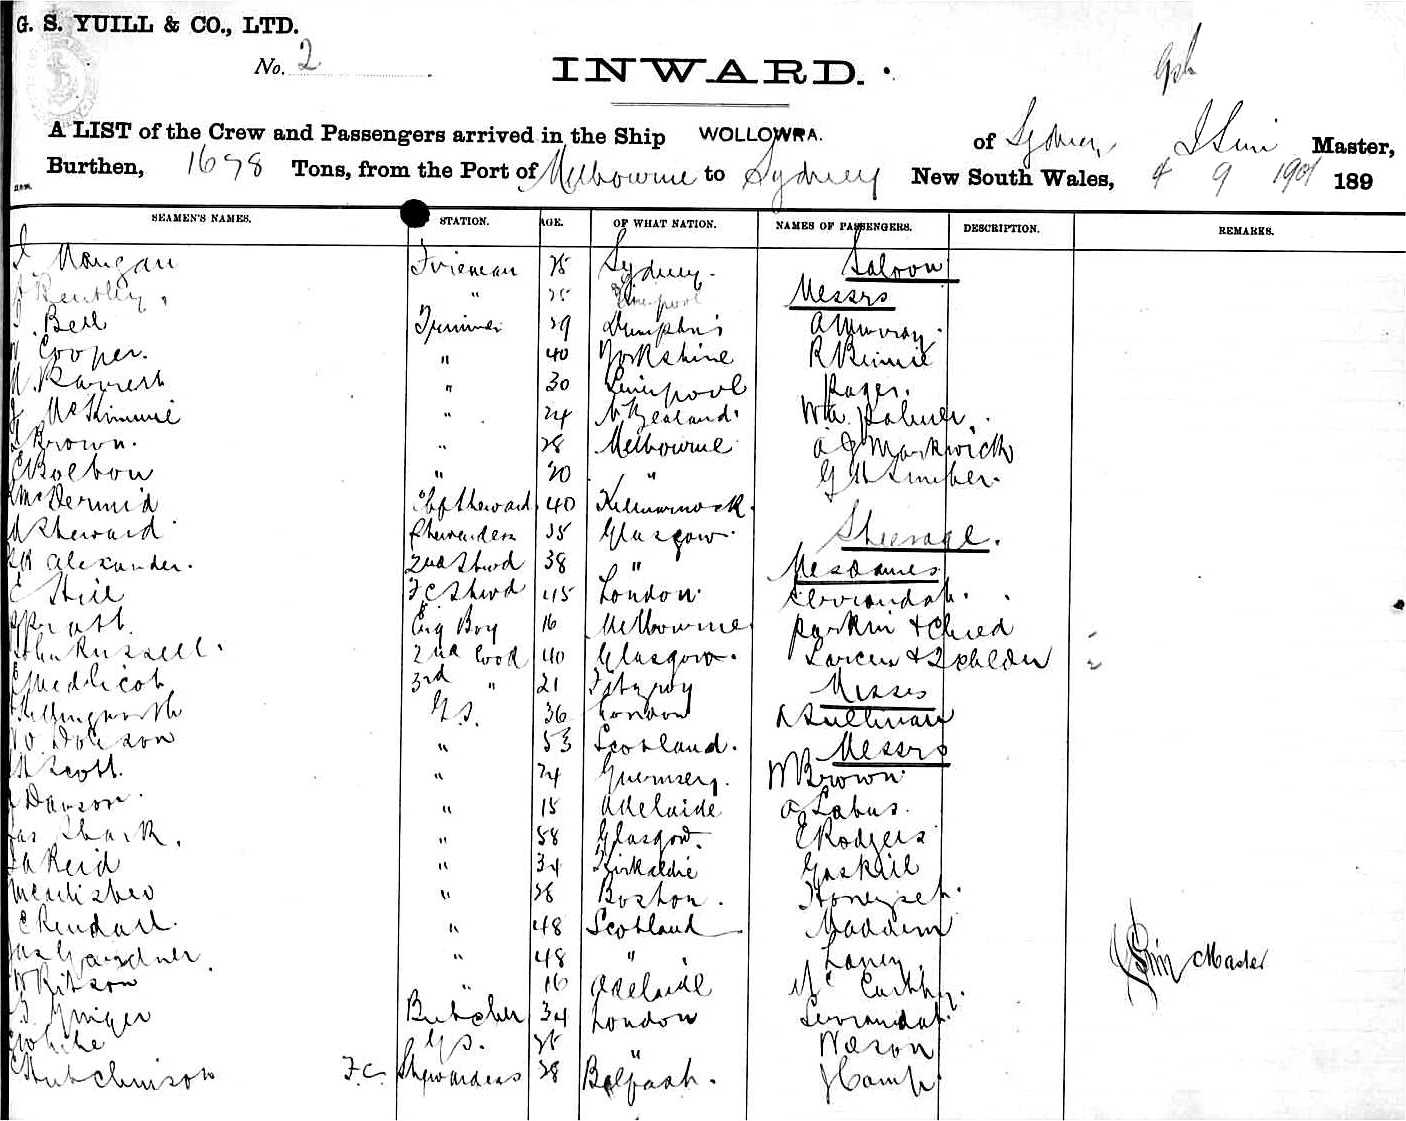 G. S. YUILL & CO., LTD.
No. 2
INWARD.
A LIST of the Crew and Passengers arrived in the Ship WOLLOWRA. of Sydney J Sim Master,
Burthen, 1698 Tons, from the Port of Melbourne to Sydney New South Wales, 4 9 1901 189
SEAMEN'S NAMES. STATION. AGE. OF WHAT NATION. NAMES OF PASSENGERS. DESCRIPTION. REMARKS.
Mangan Fireman 25 Sydney. Saloon
Bentley " 25 Liverpool Messrs
Bell Trimmer 29 Dumphries A Murray.
Cooper. " 40 Yorkshire R Binnie
Barrett " 30 Liverpool Pager.
McKimmie " 24 N Zealand. Wm Palmer.
Brown. " 28 Melbourne A J Markwick
" 20 " G H
McDermid Chf Steward 40 Kilmarnock.
Steward Stewardess 35 Glasgow. Steerage.
Alexander. 2nd Stwd 38 " Mesdames
Still F C Stwd 45 London.
Pratt Eng Boy 16 Melbourne Parkin & Child
John Russell. 2nd Cook 40 Glasgow. Larcen & 2 children
Medlicot 3rd " 21 Fitzroy Misses
Killingworth G.S. 36 London A Sullivan
Dobson " 53 Scotland. Messrs
Scott. " 24 Guernsey. W Brown
Dawson. " 15 Adelaide A Labus.
Jas " 58 Glasgow. E Rodgers
Reid " 34 Kirkaldie Gaskill
" 28 Boston. Honeyset.
C Rendall. " 48 Scotland Maddern
Jas Gardner. " 48 " Laney. J Sim Master
W Ritson " 16 Adelaide McCarthy.
Ginger Butcher 34 London
White G S. 25 " Wason
Hutchinson F.C. Stewardess 28 Belfast. J Camp